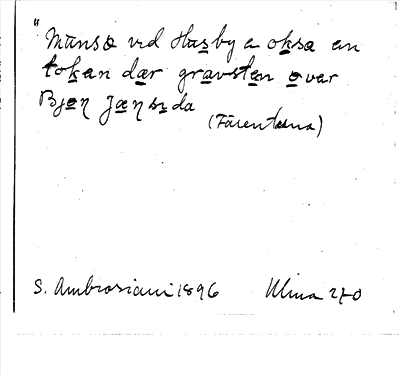 "Mänsa vid Husby a oksa en
token dær gravsten over
Bjøn Jæn sida
(Färentuna)
S. Ambrosiani 1896 Ulma 270